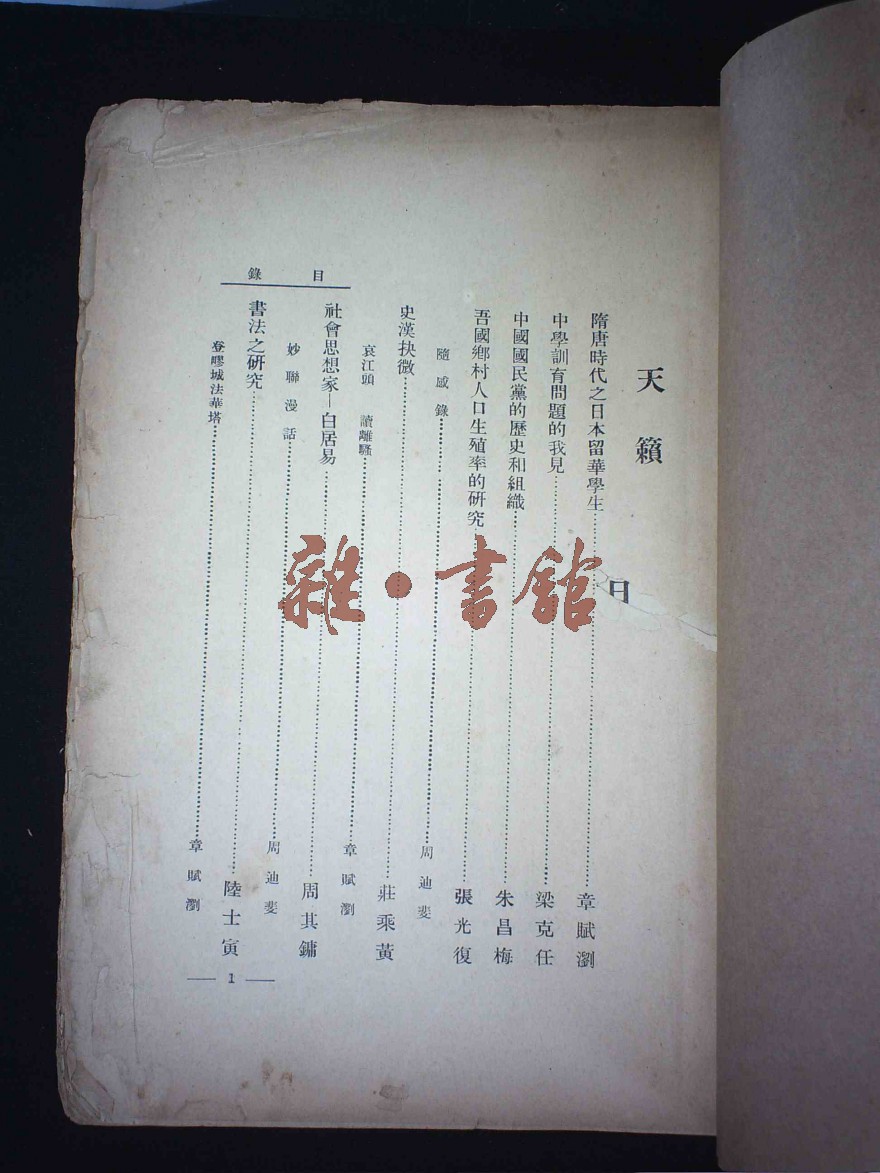 天籟
目
隋唐時代之日本留華學生……章賦瀏
中學訓育問題的我見……梁克任
中國國民黨的歷史和組織……朱昌梅
吾國鄉村人口生殖率的研究……張光復
隨感錄……周迪斐
史漢抉微……莊乘黃
哀江頭 讀離騷……章賦瀏
社會思想家—白居易……周其鏞
妙聯漫話……周迪斐
書法之研究……陸士寅
登膠城法華塔……章賦瀏
目錄
— 1 —
雜·書館